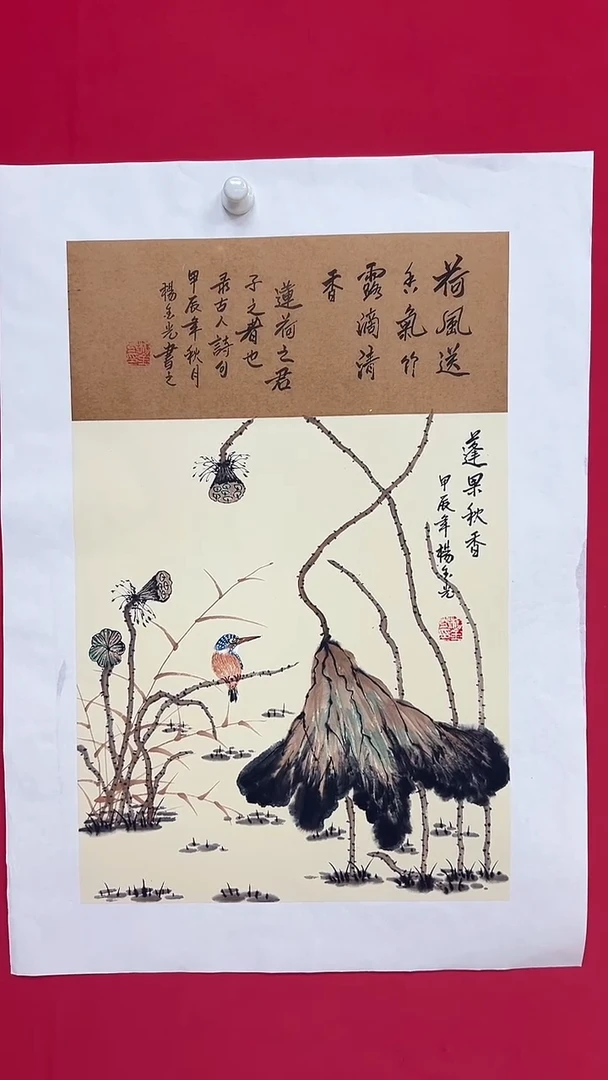 荷風送
香氣竹
露滴清
香
蓮荷之君
子之者也
录古人詩句
甲辰年秋月
楊金光書之
蓬果秋香
甲辰年楊金光